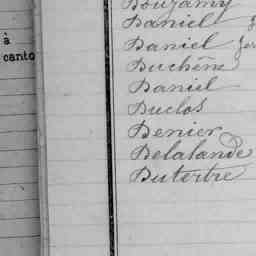 Bouzamy
Daniel
à
Daniel
canto
Duchêne
Daniel
Duclos
Denier
Delalande
Dutertre